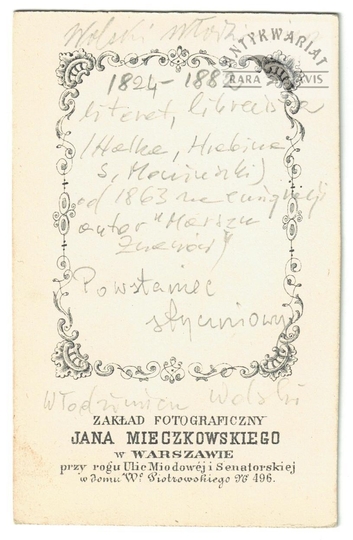 Wolski Włodzi
ANTYKWARIAT
RARA AVIS
1824-1882
literat, librecista
/Halka, Hrabina
S. Moniuszki)
od 1863 na emigracji
autor "Marsza
Żuawów"
Powstaniec
styczniowy
Włodzimierz Wolski
ZAKŁAD FOTOGRAFICZNY
JANA MIECZKOWSKIEGO
w WARSZAWIE
przy rogu Ulic Miodowéj i Senatorskiej
w domu Wº Piotrowskiego № 496.